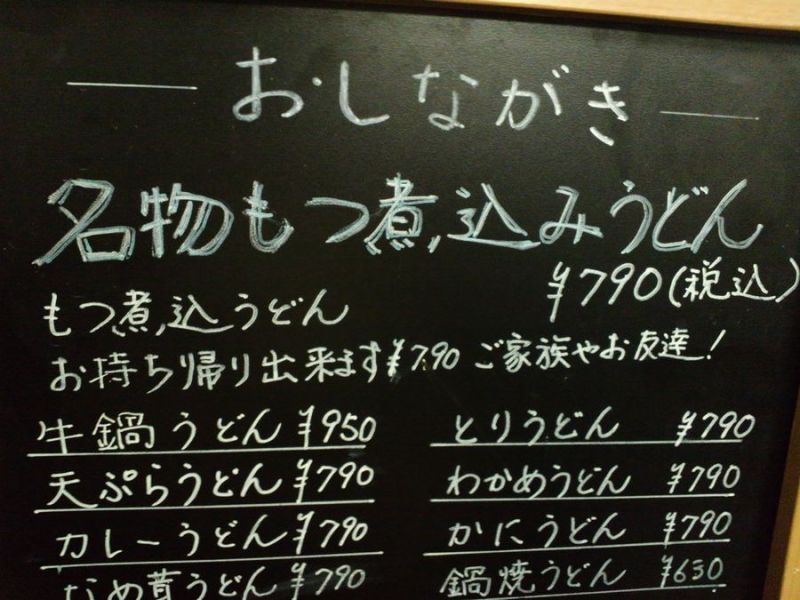 おしながき
名物もつ煮込みうどん
¥790(税込)
もつ煮込うどん
お持ち帰り出来ます¥790 ご家族やお友達!
牛鍋うどん ¥950
天ぷらうどん ¥790
カレーうどん ¥790
なめ茸うどん ¥790
とりうどん ¥790
わかめうどん ¥790
かにうどん ¥790
鍋焼うどん ¥630